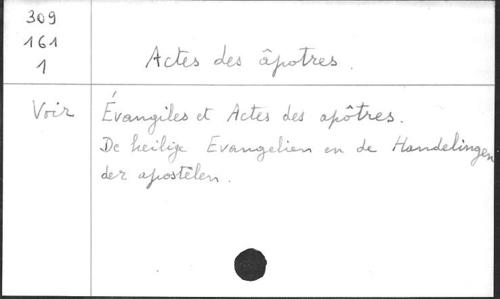 309
161
1
Actes des âpotres.
Voir Évangiles et Actes des apôtres.
De heilige Evangelien en de Handelingen
der apostelen.